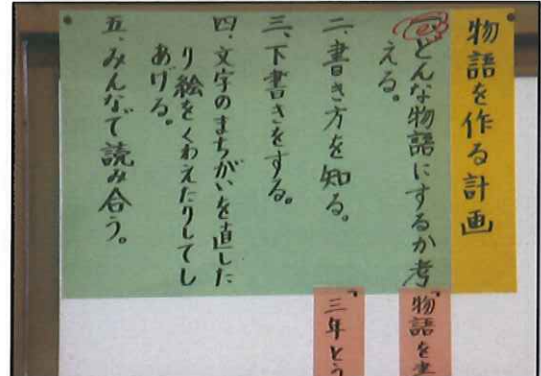 物語を作る計画
一、どんな物語にするか考
える。
二、書き方を知る。
三、下書きをする。
四、文字のまちがいを直した
り絵をくわえたりしてし
あげる。
五、みんなで読み合う。
「物語を書
「三年とう